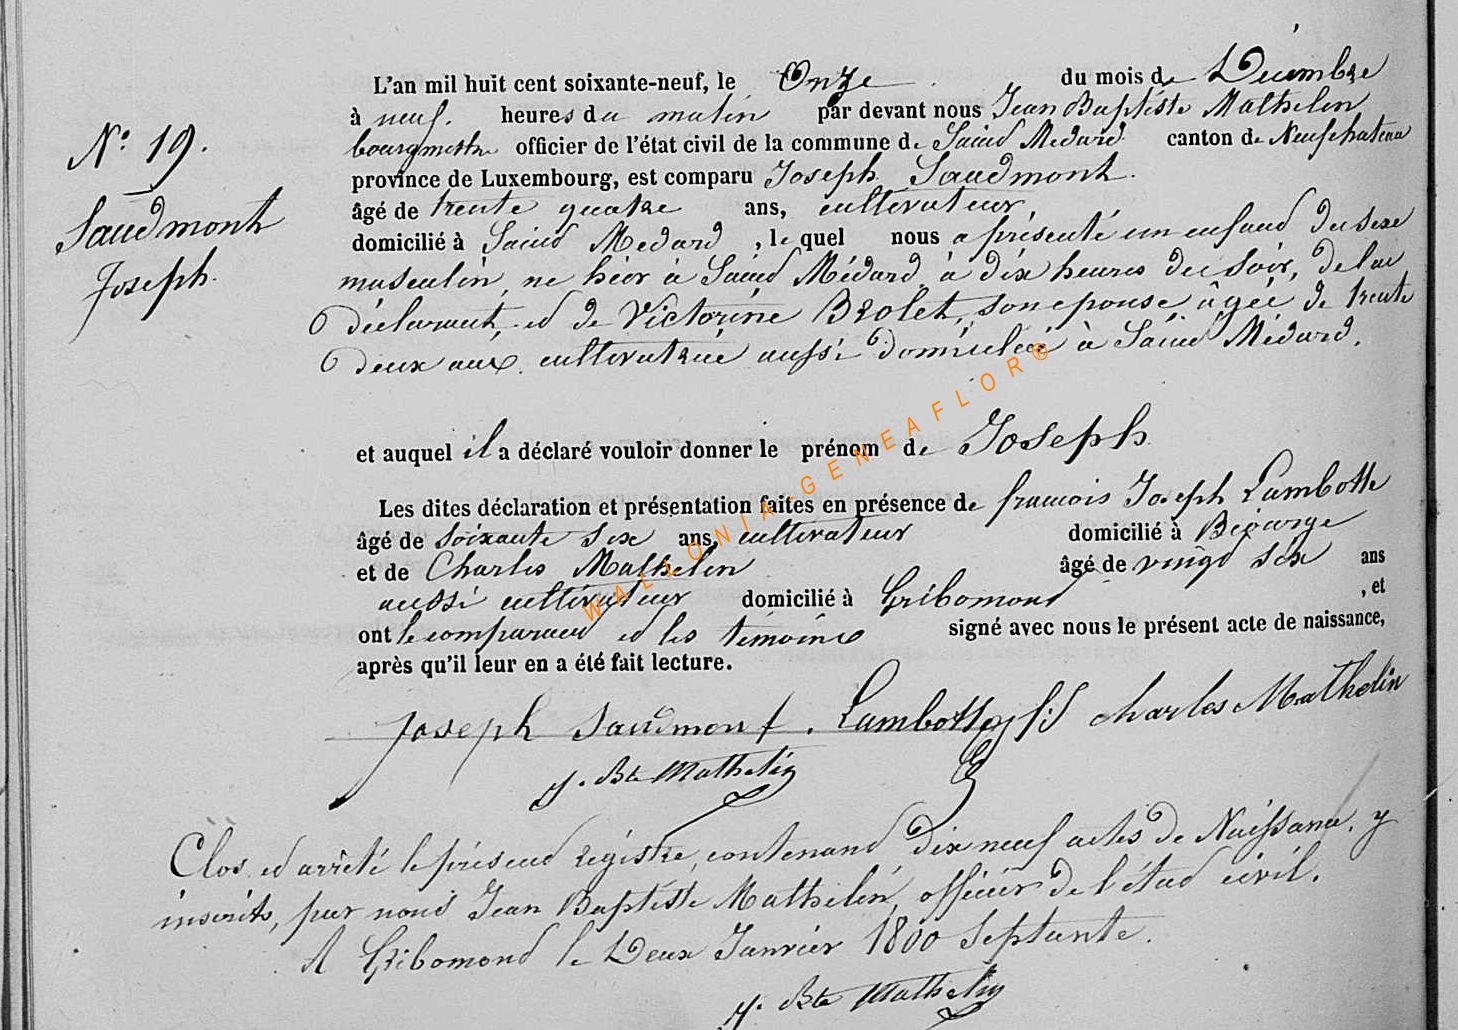 N° 19.
Saudmont
Joseph.
L'an mil huit cent soixante-neuf, le Onze du mois de Décembre
à neuf. heures du matin par devant nous Jean Baptiste Mathelin
bourgmestre officier de l'état civil de la commune de Saind Medard canton de Neufchateau
province de Luxembourg, est comparu Joseph Saudmont.
âgé de trente quatre ans, cultivateur
domicilié à Saind Medard, lequel nous a présenté un enfand du sexe
masculin, ne hier à Saind Médard à dix heures du soir, de lui
déclarant, ed de Victorine Brolet, son epouse âgée de trente
deux ans. cultivatrice aussi domiciliée à Saind Médard.
et auquel il a déclaré vouloir donner le prénom de Joseph
Les dites déclaration et présentation faites en présence de francois Joseph Lambotte
âgé de soixante six ans, cultivateur domicilié à
et de Charles Mathelin âgé de vingd six ans
aussi cultivateur domicilié à Gribomond, et
ont le comparand ed les témoins signé avec nous le présent acte de naissance,
après qu'il leur en a été fait lecture.
Joseph Saudmont. Lambotte fs charles Mathelin
J. Bte Mathelin
Clos ed arrêté le présend régistre, contenand dix neuf actes de Naissance. y
inscrits, par nous Jean Baptiste Mathelin, officier de l'étad civil.
A Gribomond le Deux Janvier 1800 Septante.
J. Bte Mathelin
WALLONIA-GENEAFLOR®